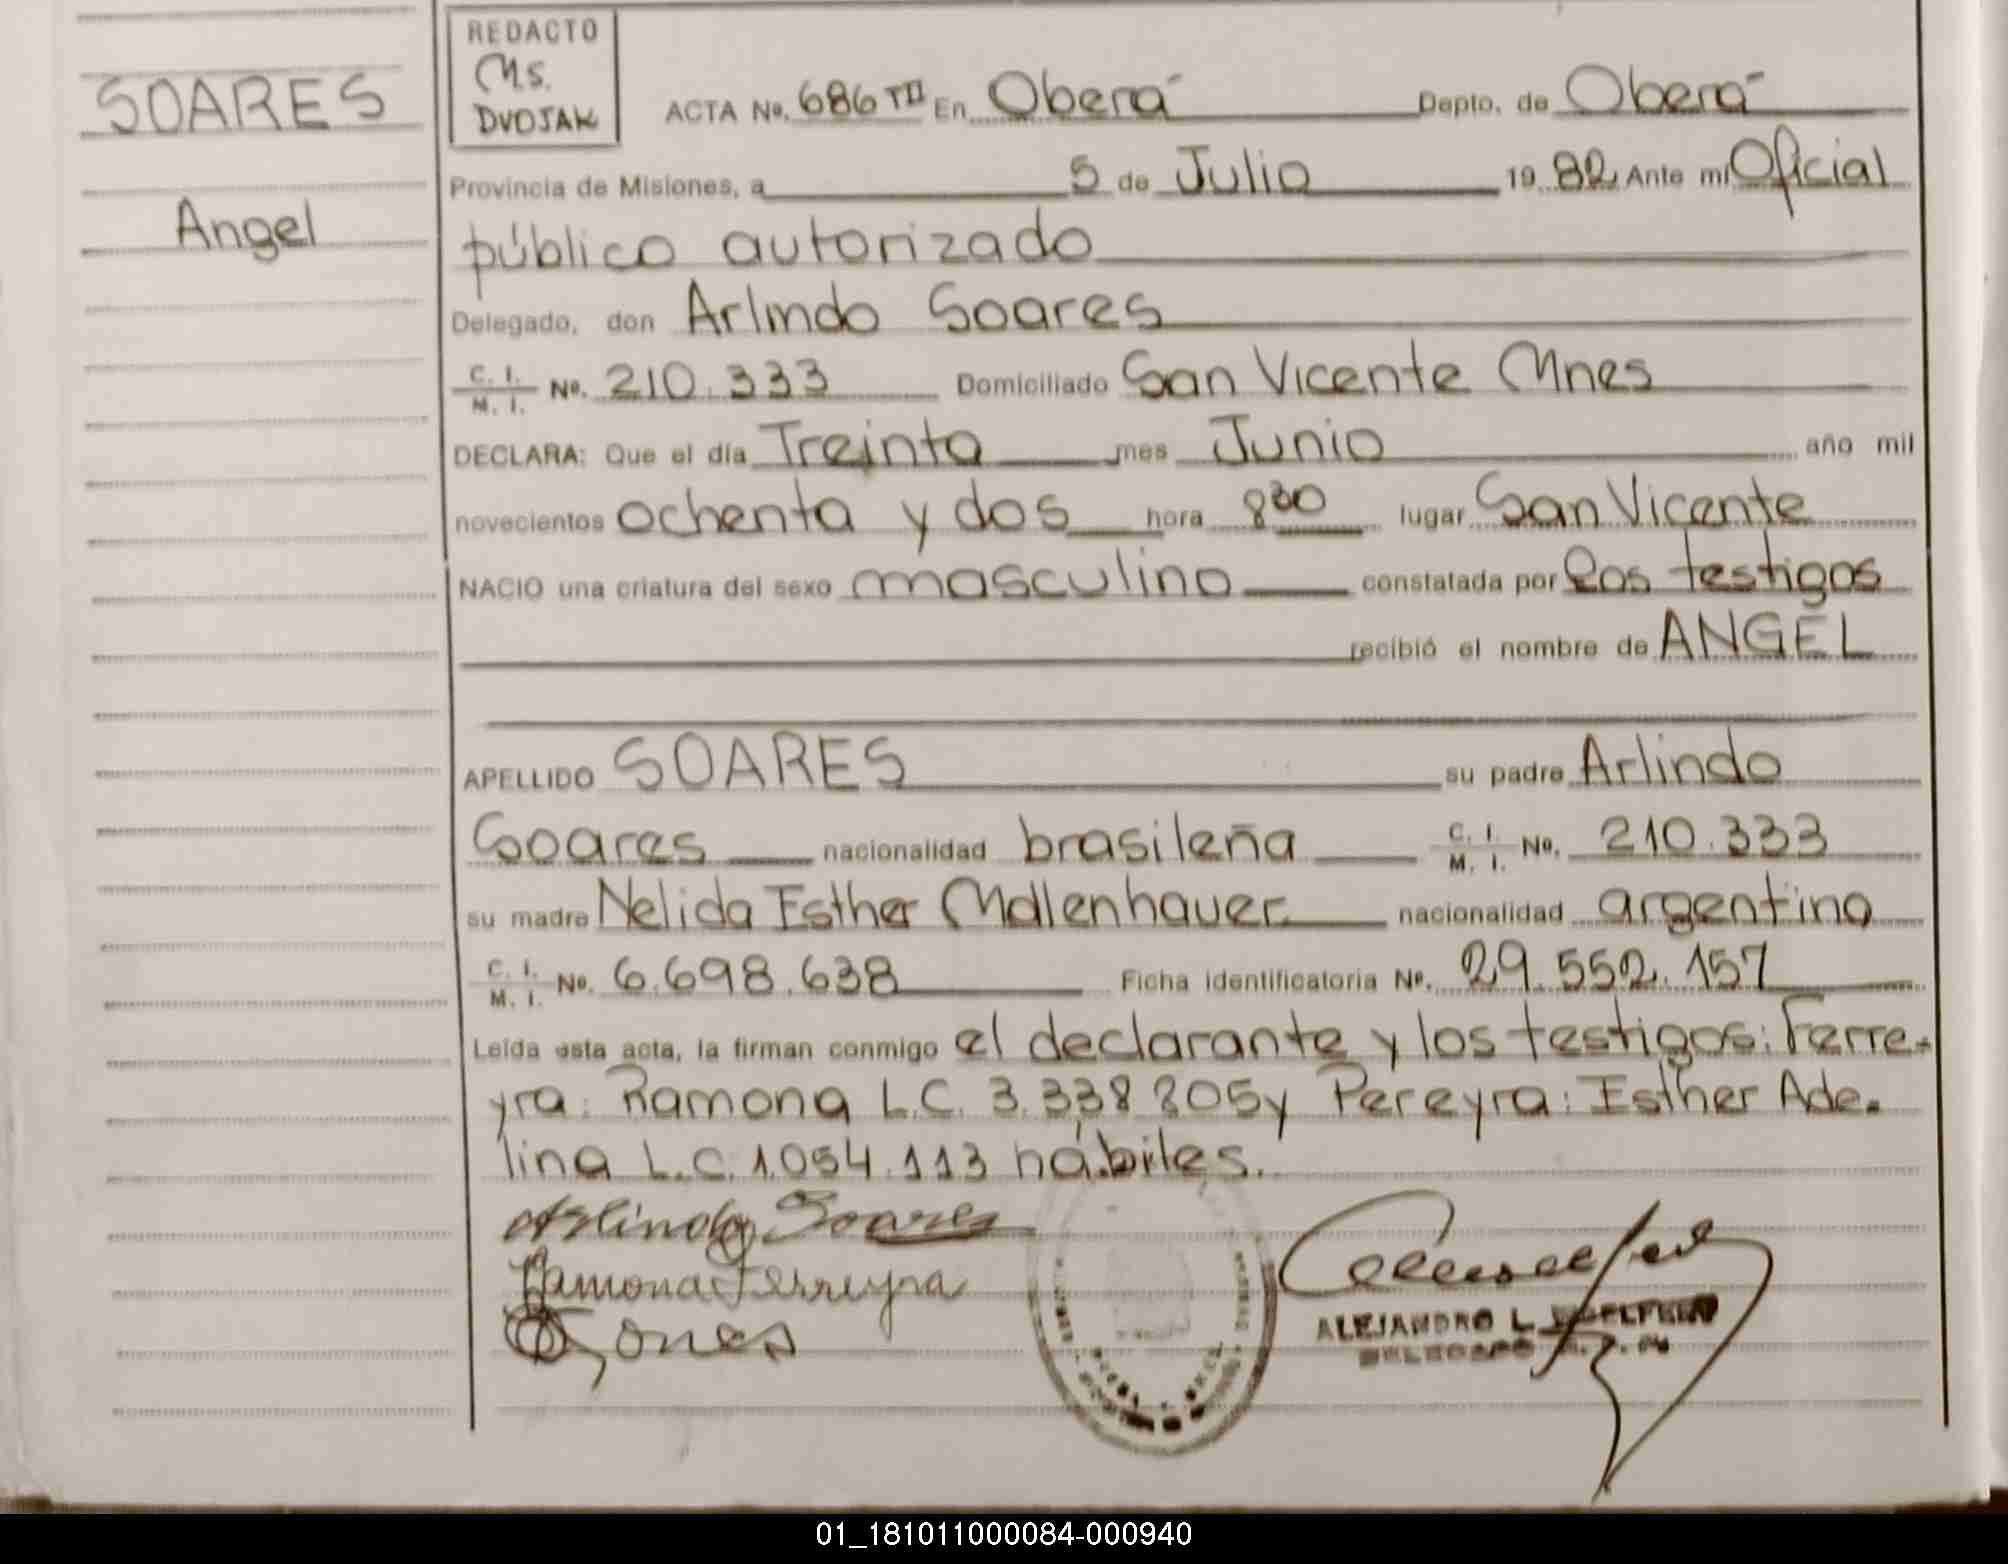 SOARES
Angel
REDACTO
Ms.
DVOJAK
ACTA No. 686 TII En Oberá Depto. de Oberá
Provincia de Misiones, a 5 de Julio 1982 Ante mi Oficial
público autorizado
Delegado, don Arlindo Soares
C. I. / M. I. No. 210.333 Domiciliado San Vicente Mnes
DECLARA: Que el día Treinta mes Junio año mil
novecientos ochenta y dos hora 830 lugar San Vicente
NACIO una criatura del sexo masculino constatada por los testigos
recibió el nombre de ANGEL
APELLIDO SOARES su padre Arlindo
Soares nacionalidad brasileña C. I. / M. I. No. 210.333
su madre Nelida Esther Mollenhauer nacionalidad argentina
C. I. / M. I. No. 6.698.638 Ficha identificatoria Nº. 29.552.157
Leída esta acta, la firman conmigo el declarante y los testigos: Ferre-
yra: Ramona L.C. 3.338.805 y Pereyra: Esther Ade-
lina L.C. 1.054.113 hábiles.
Arlindo Soares
Ramona Ferreyra
ALEJANDRO L.
DELEGADO
01_181011000084-000940